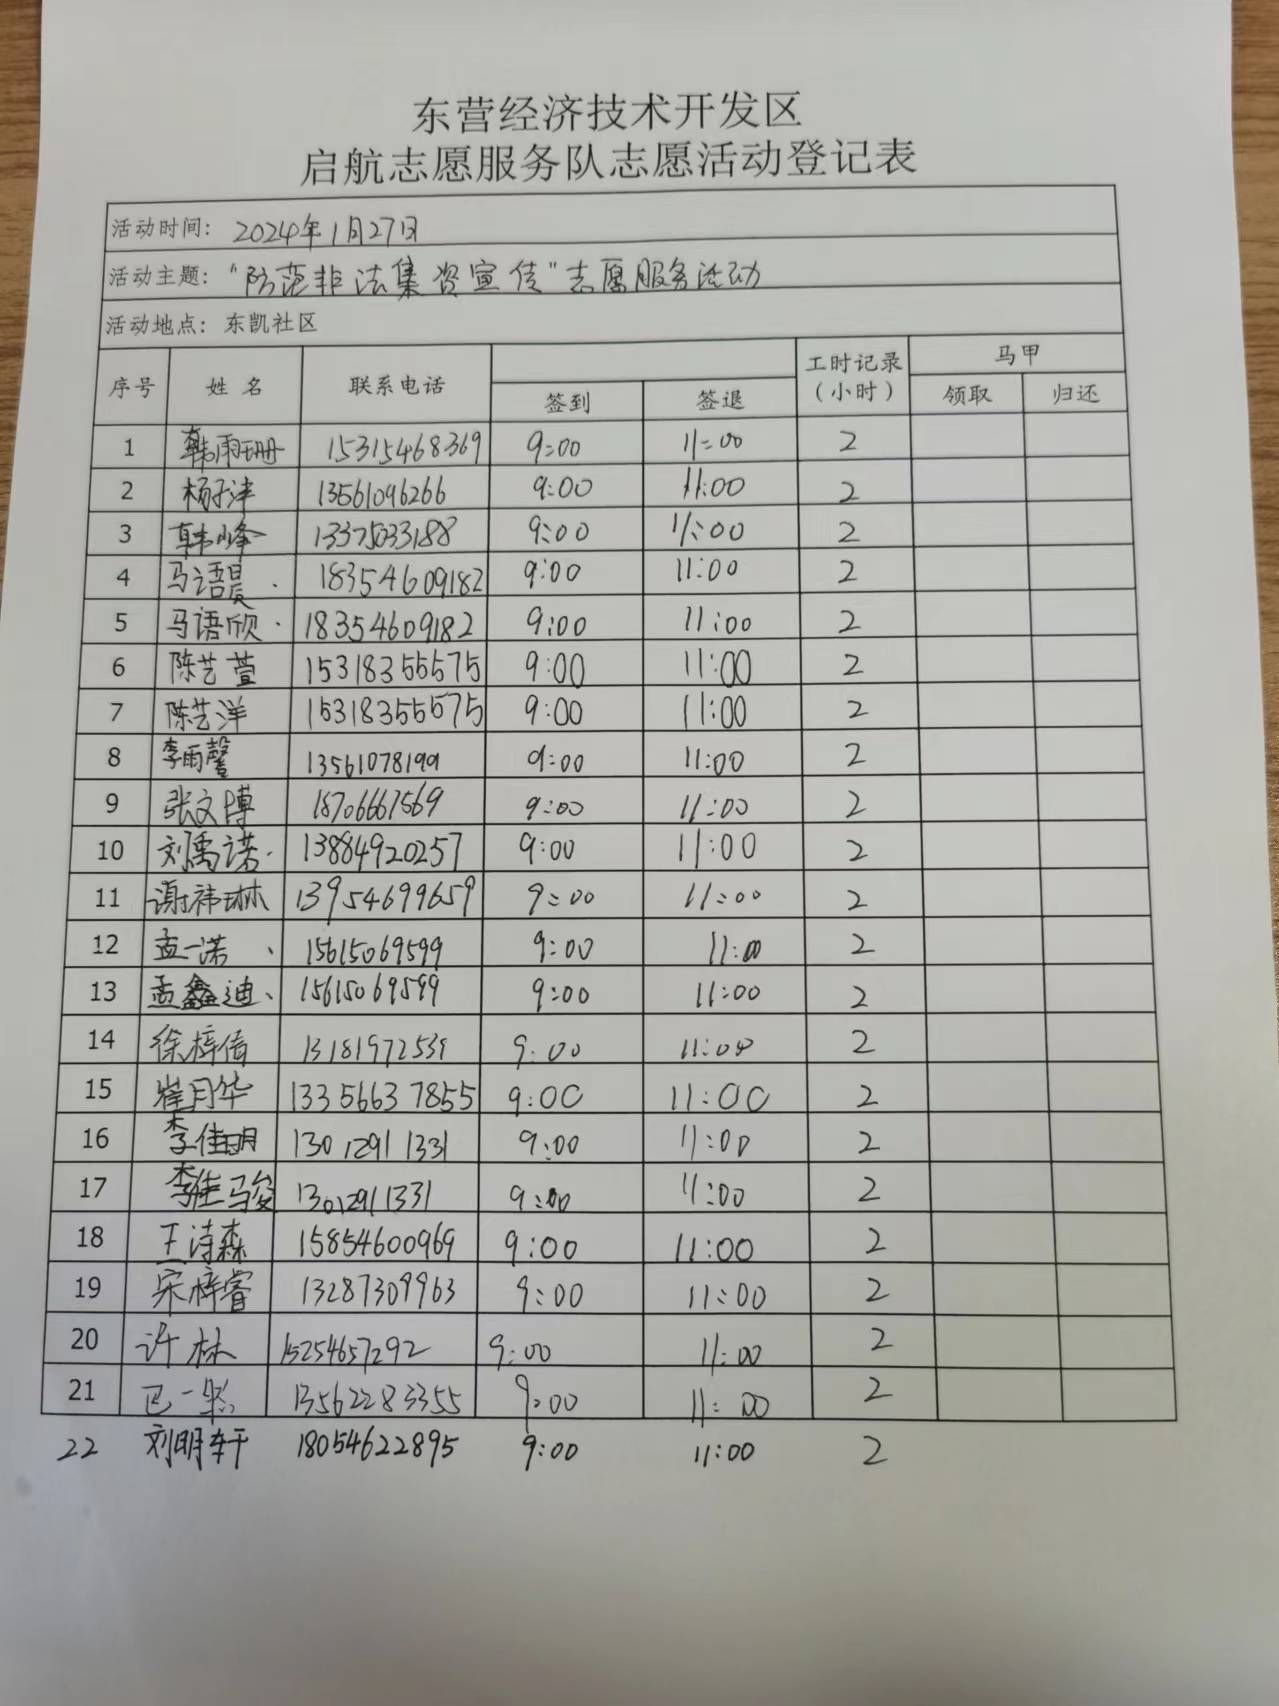 东营经济技术开发区
启航志愿服务队志愿活动登记表
活动时间: 2024年1月27日
活动主题: "防范非法集资宣传"志愿服务活动
活动地点: 东凯社区
序号 姓名 联系电话 签到 签退 工时记录(小时) 马甲 领取 归还
1 韩雨珊 15315468369 9:00 11:00 2
2 杨子津 13561096266 9:00 11:00 2
3 韩峰 13375033188 9:00 11:00 2
4 马语晨 18354609182 9:00 11:00 2
5 马语欣 18354609182 9:00 11:00 2
6 陈艺萱 15318355575 9:00 11:00 2
7 陈艺洋 15318355575 9:00 11:00 2
8 李雨馨 13561078199 9:00 11:00 2
9 张文博 18706667569 9:00 11:00 2
10 刘禹诺 13884920257 9:00 11:00 2
11 谢祎琳 13954699659 9:00 11:00 2
12 孟一诺 15615069599 9:00 11:00 2
13 孟鑫迪 15615069599 9:00 11:00 2
14 徐梓倚 13181972539 9:00 11:00 2
15 崔月华 13356637855 9:00 11:00 2
16 李佳明 13012911331 9:00 11:00 2
17 李佳骏 13012911331 9:00 11:00 2
18 王诗森 15854600969 9:00 11:00 2
19 宋梓睿 13287309963 9:00 11:00 2
20 许林 15254657292 9:00 11:00 2
21 一 13562283355 9:00 11:00 2
22 刘明轩 18054622895 9:00 11:00 2